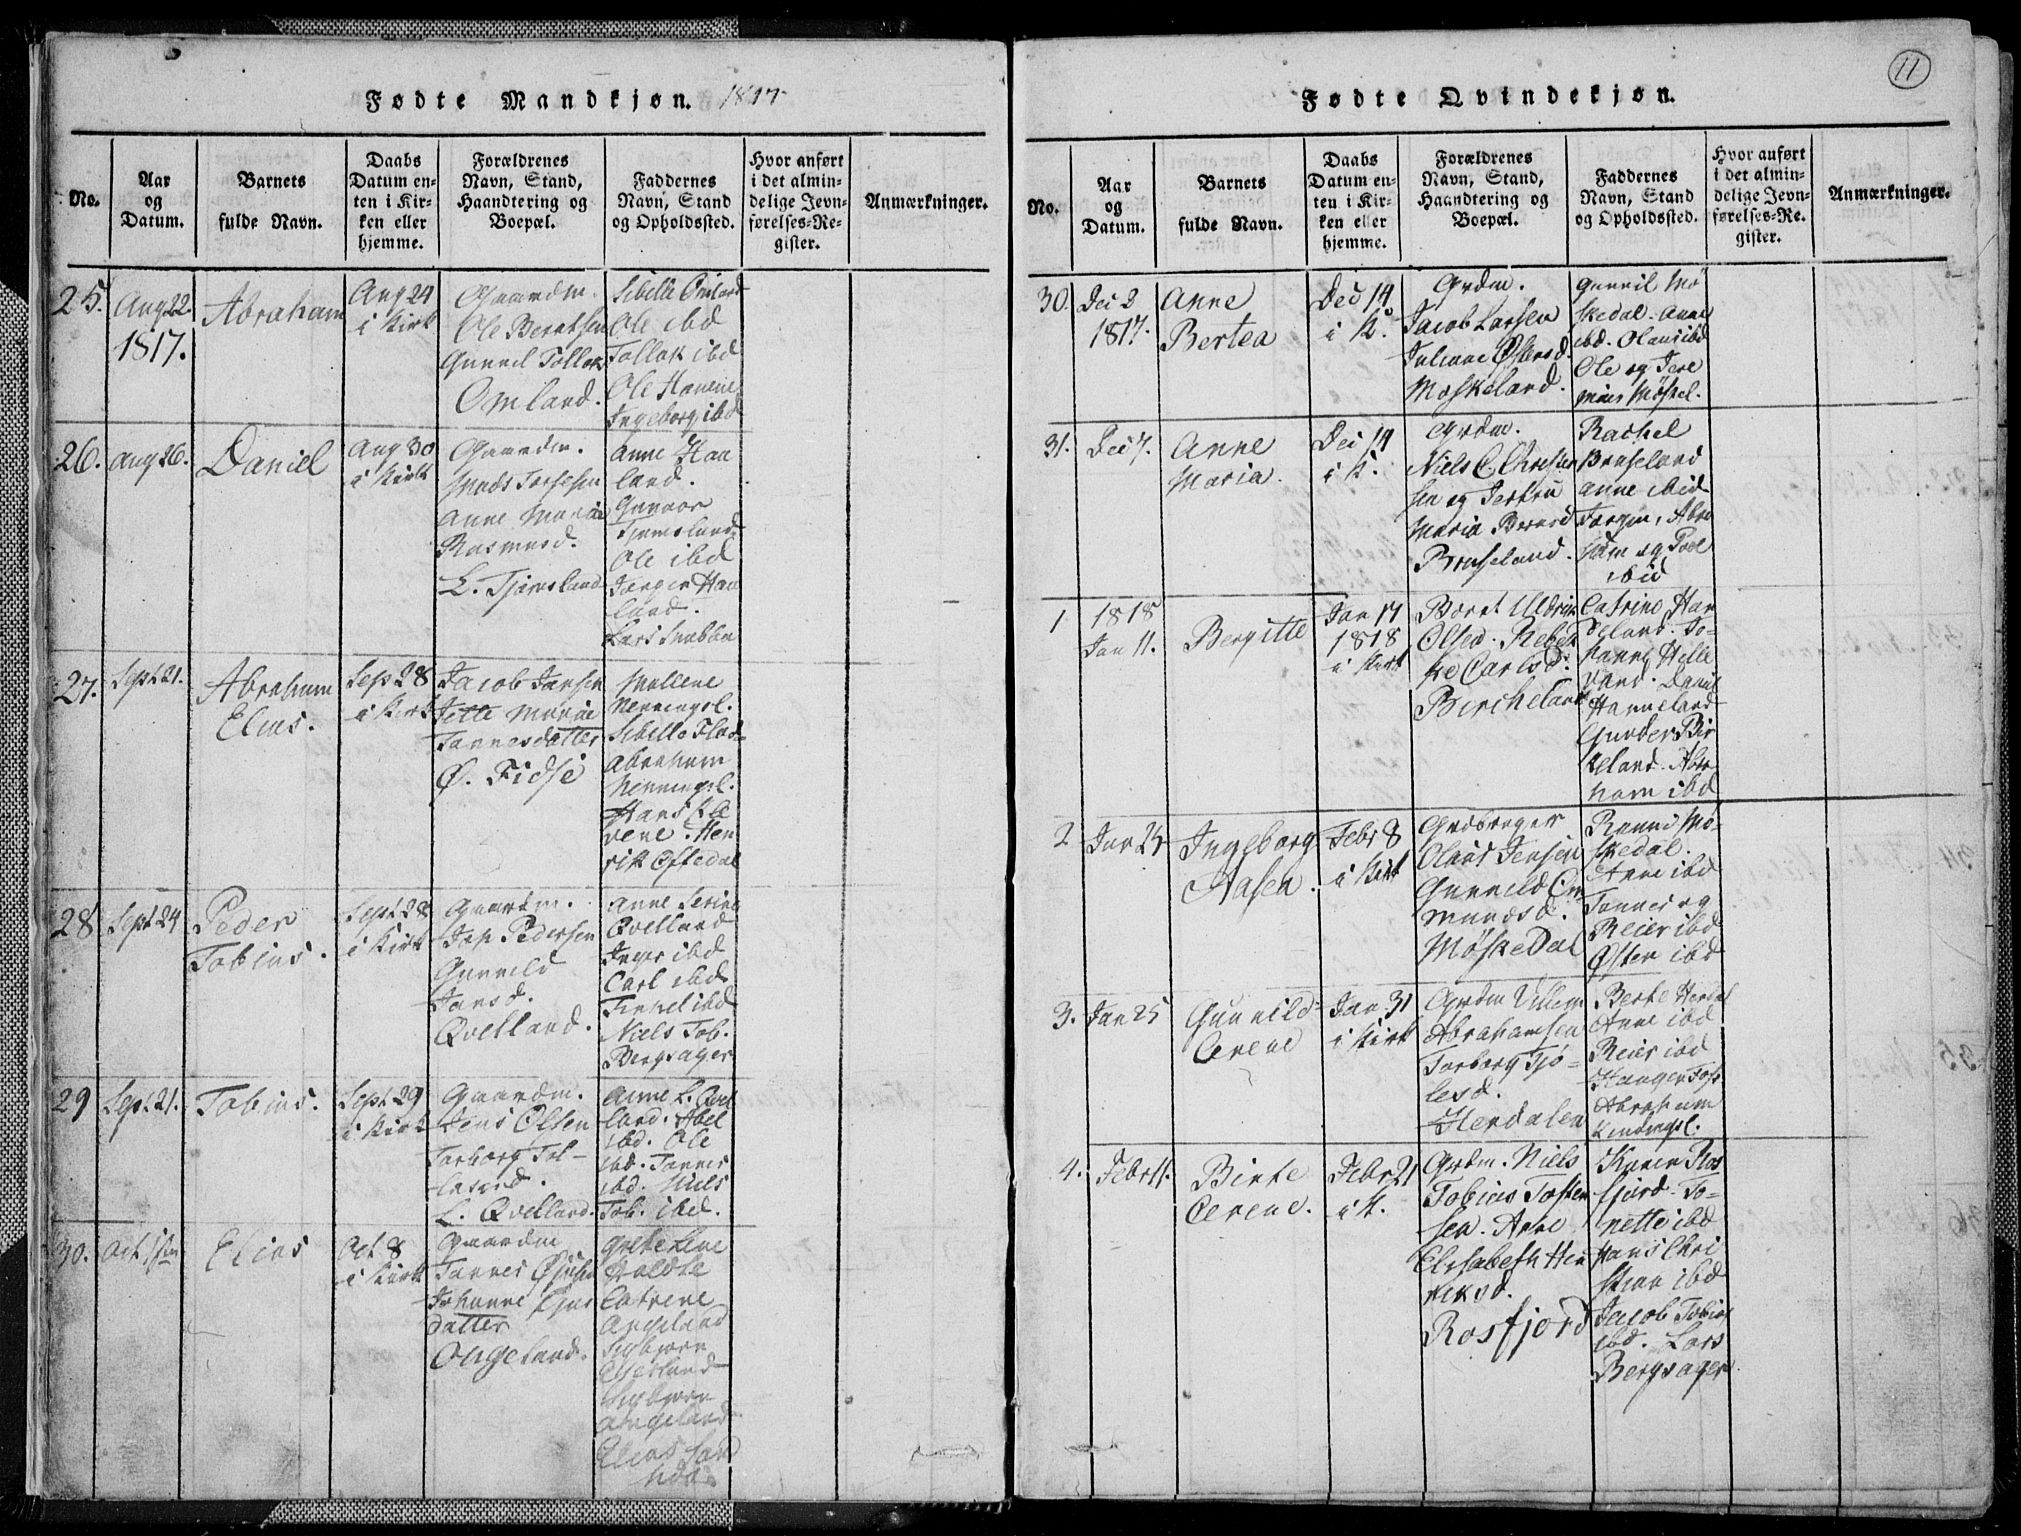 Fødte Mandkjøn. 1817
No.
Aar
og
Datum.
Barnets
fulde Navn.
Daabs
Datum en-
ten i Kir-
ken eller
hjemme.
Forældrenes
Navn, Stand,
Haandtering og
Boepæl.
Faddernes
Navn, Stand
og Opholdssted.
Hvor anført
i det almin-
delige Jevn-
førelses-Re-
gister.
Anmærkninger.
25.
Aug 22.
1817.
Abraham
Aug 24
i Kirk
Gaardm.
Ole Berntsen
Gunvil Tollaks
Omland.
Sibille Omland
Ole ibd
Tollak ibd
Ole Hanene
Ingeborg ibd
26.
Aug 26.
Daniel
Aug 30
i Kirk
Gaardm.
Mads Torjesen
Anne Maria
Rasmusd.
L. Tjomsland
Anne Haa
land.
Gunvor
Tjomsland
Ole ibd
Jørgen Haa
land.
Lars Snabba
27.
Sept 21.
Abraham
Elias.
Sep 28
i Kirk
Jacob Jansen
Jette Maria
Tønnesdatter
Ø. Fidse
Mallene
Nenningsl.
Sibille Flad-
Abraham
Nenningsl.
Hans Kle
vene. Hen
rik Oftedal
28
Sept 24
Peder
Tobias.
Sept 28
i Kirk
Gaardm.
Jop Pedersen
Gunvild
Jansd.
Qvelland.
Anne Serine
Qvelland
Inger ibd
Carl ibd
Tinnel ibd
Niels Tob.
Bergsager
29
Sept 21.
Tobias.
Sept 29
i Kirk
Gaardm.
Jens Olsen
Torborg Tol-
lasend.
L. Qvelland.
Anne L. Qvel
land. Abel
ibd. Ole
ibd. Tønnes
ibd. Niels
Tob. ibd.
30.
Oct 1ste
Elias
Oct 8
i Kirk
Gaardm
Tønnes Øjufsen
Johanne Ejus
datter
Ougeland.
Grete Lene
Foldte
Catrine
Augeland
Sigbjørn
Eyetland
Sigbjørn
Augeland
Elias Sand

Fødte Qvindekjøn.
11
No.
Aar
og
Datum.
Barnets
fulde Navn.
Daabs
Datum en-
ten i Kir-
ken eller
hjemme.
Forældrenes
Navn, Stand,
Haandtering og
Boepæl.
Faddernes
Navn, Stand
og Opholdssted.
Hvor anført
i det almin-
delige Jevn-
førelses-Re-
gister.
Anmærkninger.
30.
Dec 2
1817.
Anne
Bertea
Dec 14
i K.
Grdm.
Jacob Larsen
Juliane Østensd.
Moskeland.
Gunvil Mø
skedal. Anne
ibd. Olaus ibd
Ole og Jere
mias Møskel.
31.
Dec 7.
Anne
Maria.
Dec 14
i K.
Grdm.
Niels C. Christen
sen og Jertru
Maria Berntsd
Bruseland.
Rachel
Bruseland
Anne ibid
Jørgen, Abra
ham og Poel
ibid
1
1818
Jan 11.
Bergitte
Jan 17
1818
i Kirk
Bernt Uldrik
Olsen. Rebek
ke Carlsd.
Bircheland
Catrine Han
deland. To-
hanne Helle
vand. Daniel
Hanneland
Gunder Bir
keland. Abra
ham ibd
2
Jan 25
Ingeborg
Aasen.
Febr 8
i Kirk
Grdbruger
Olaus Jensen
Gunnild Om
mundsd.
Møskedal
Ranni Mø-
skedal.
Anne ibd
Tønnes og
Reier ibd
Østen ibd
3.
Jan 25
Gunnild
Cerene
Jan 31
i Kirk
Grdm Villem
Abrahamsen
Torborg Tjø-
lesd.
Herdalen
Berte Herdal
Anne ibd
Reier ibd
Abraham
Kindingsl.
4.
Febr 11.
Birte
Cerene.
Febr 21
i K.
Grdm. Niels
Tobias Tosten
sen. Anne
Elisabeth Hen
riksd.
Rosfjord
Karen Ros
fjord. To-
nette ibd
Hans Chri
stian ibd
Jacob Tobias
ibd. Lars
Bergsager.